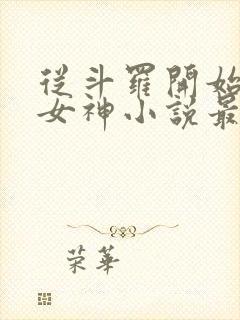 從斗羅開始
女神小說最
荣華